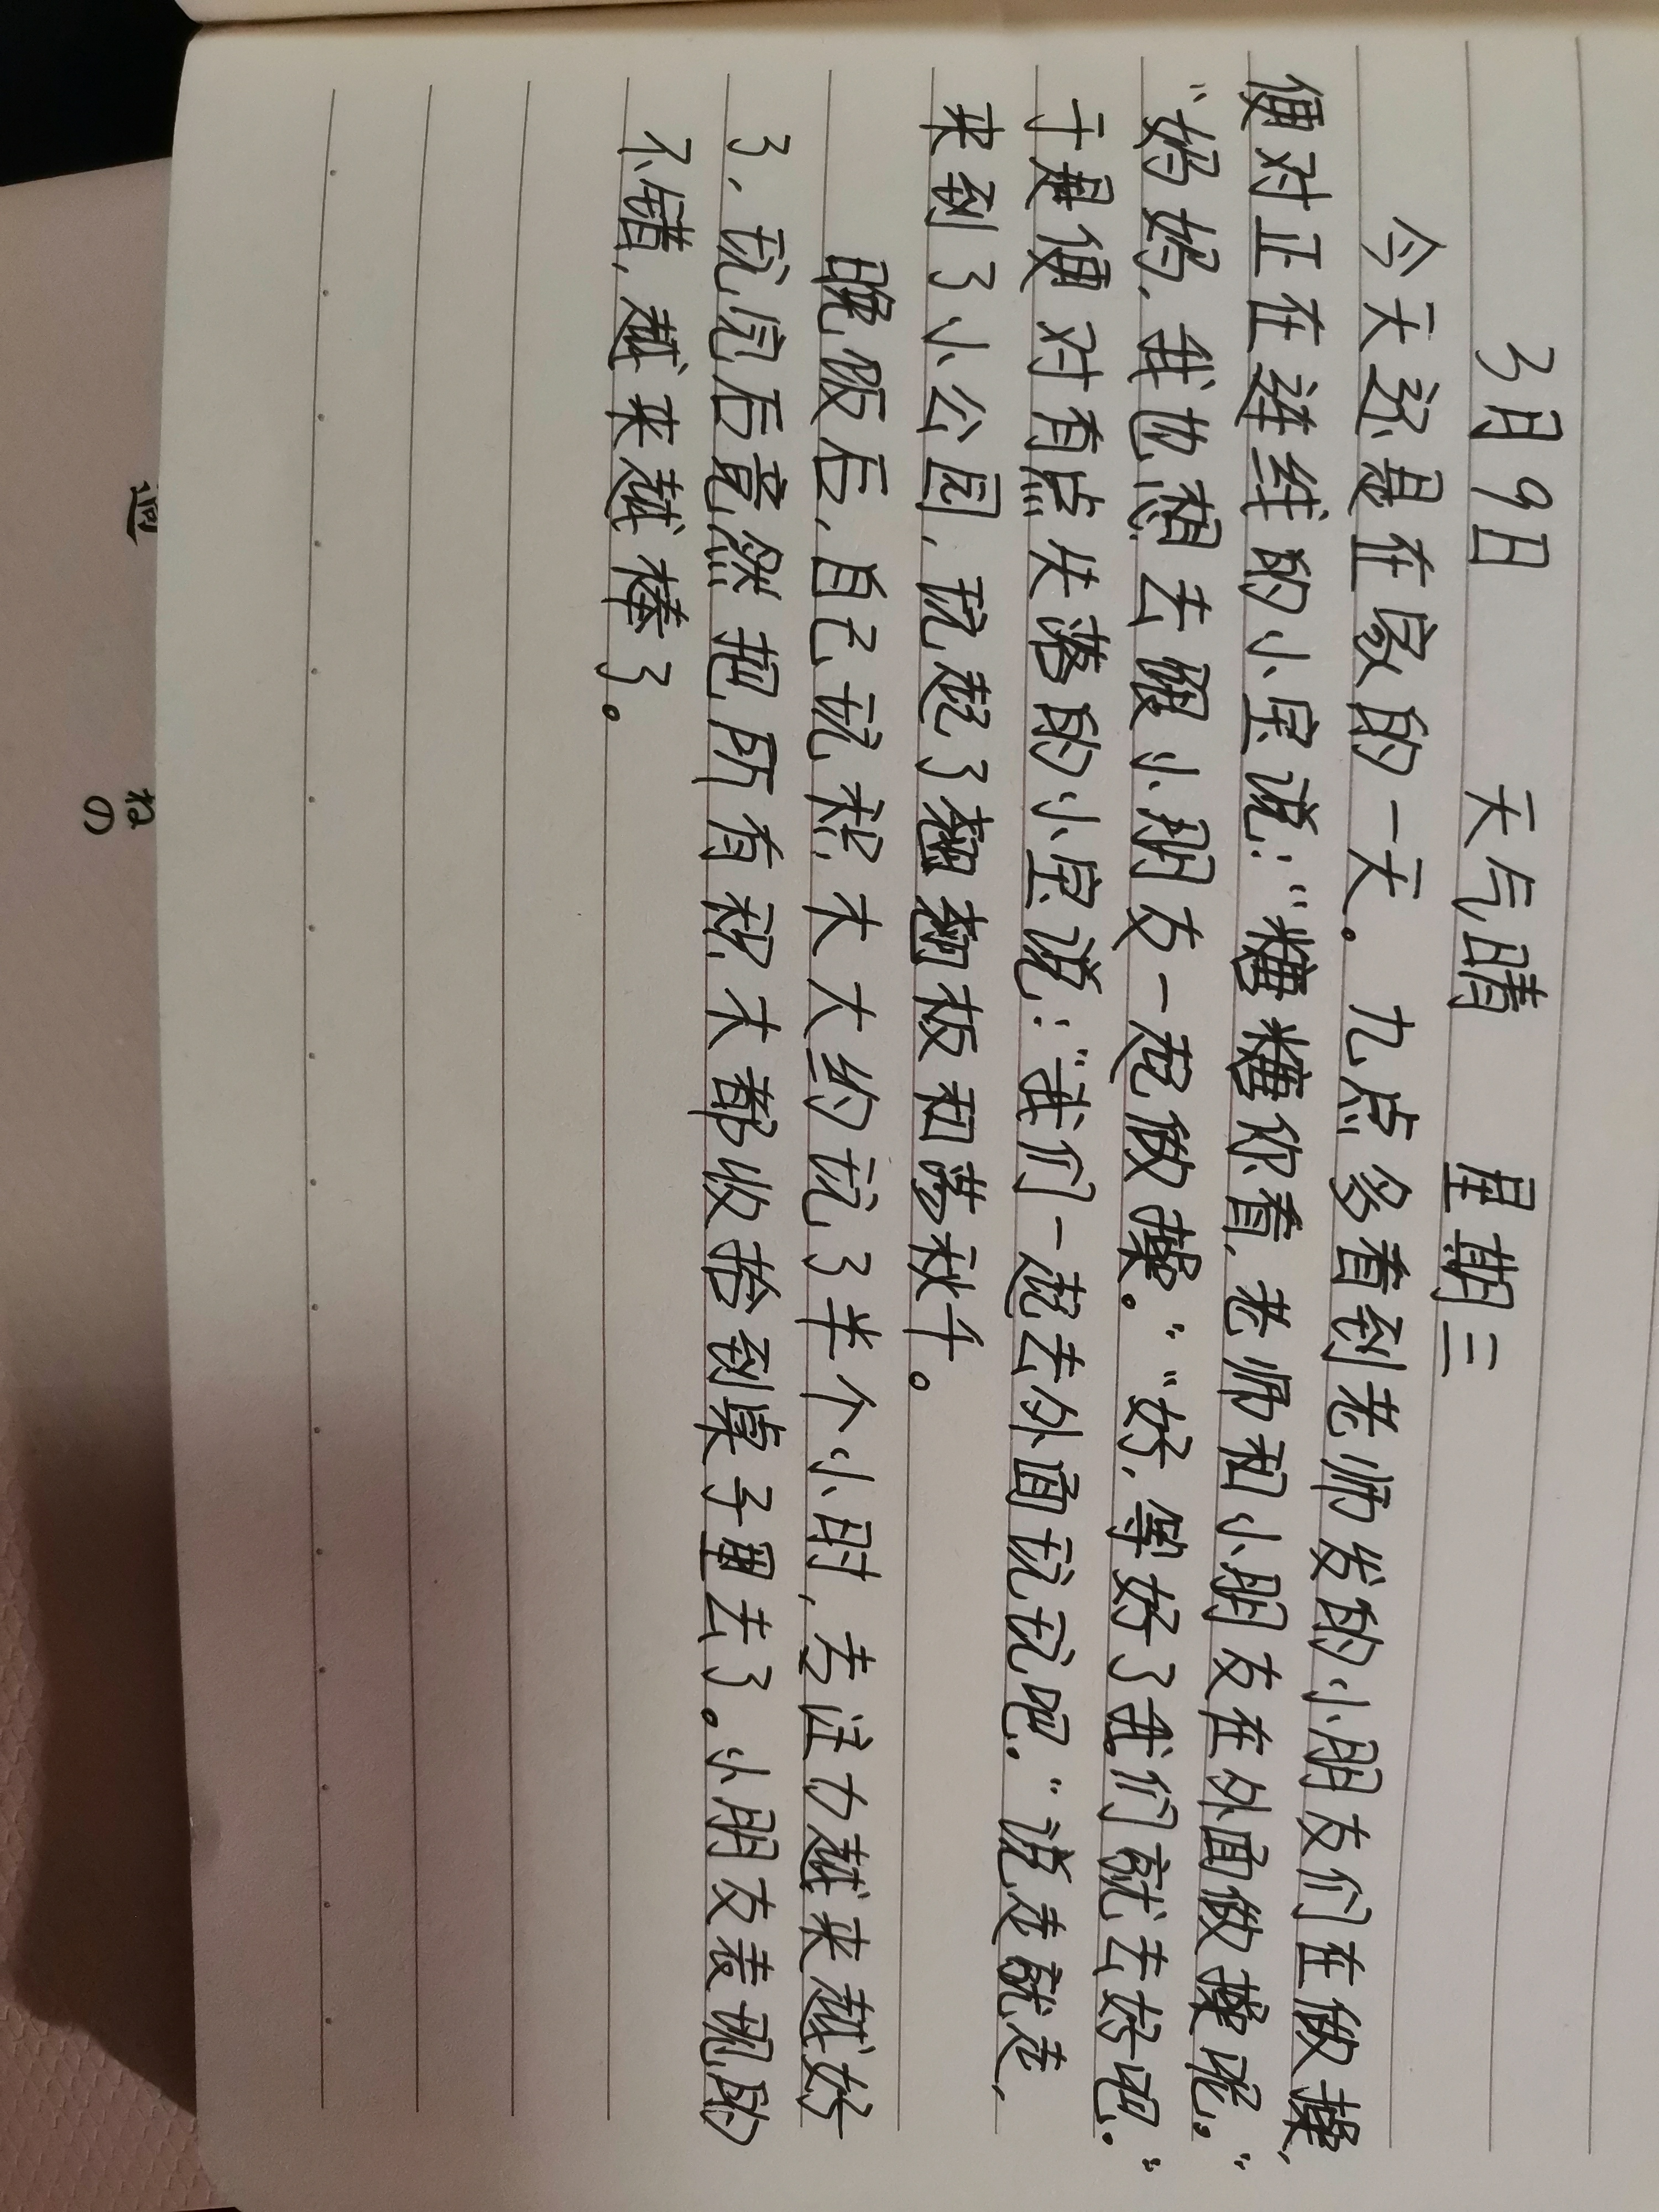 3月9日 天气晴 星期三
今天还是在家的一天。九点多看到老师发的小朋友们在做操,
便对正在连线的小宝说:“糖糖你看,老师和小朋友在外面做操呢。”
“妈妈,我也想去跟小朋友一起做操。”“好,等好了我们就去好吧。”
于是便对有点失落的小宝说:“我们一起去外面玩玩吧。”说走就走,
来到了小公园,玩起了翘翘板和荡秋千。
晚饭后,自己玩积木大约玩了半个小时,专注力越来越好
了,玩完后竟然把所有积木都收拾到桌子里去了。小朋友表现的
不错,越来越棒了。
ねの